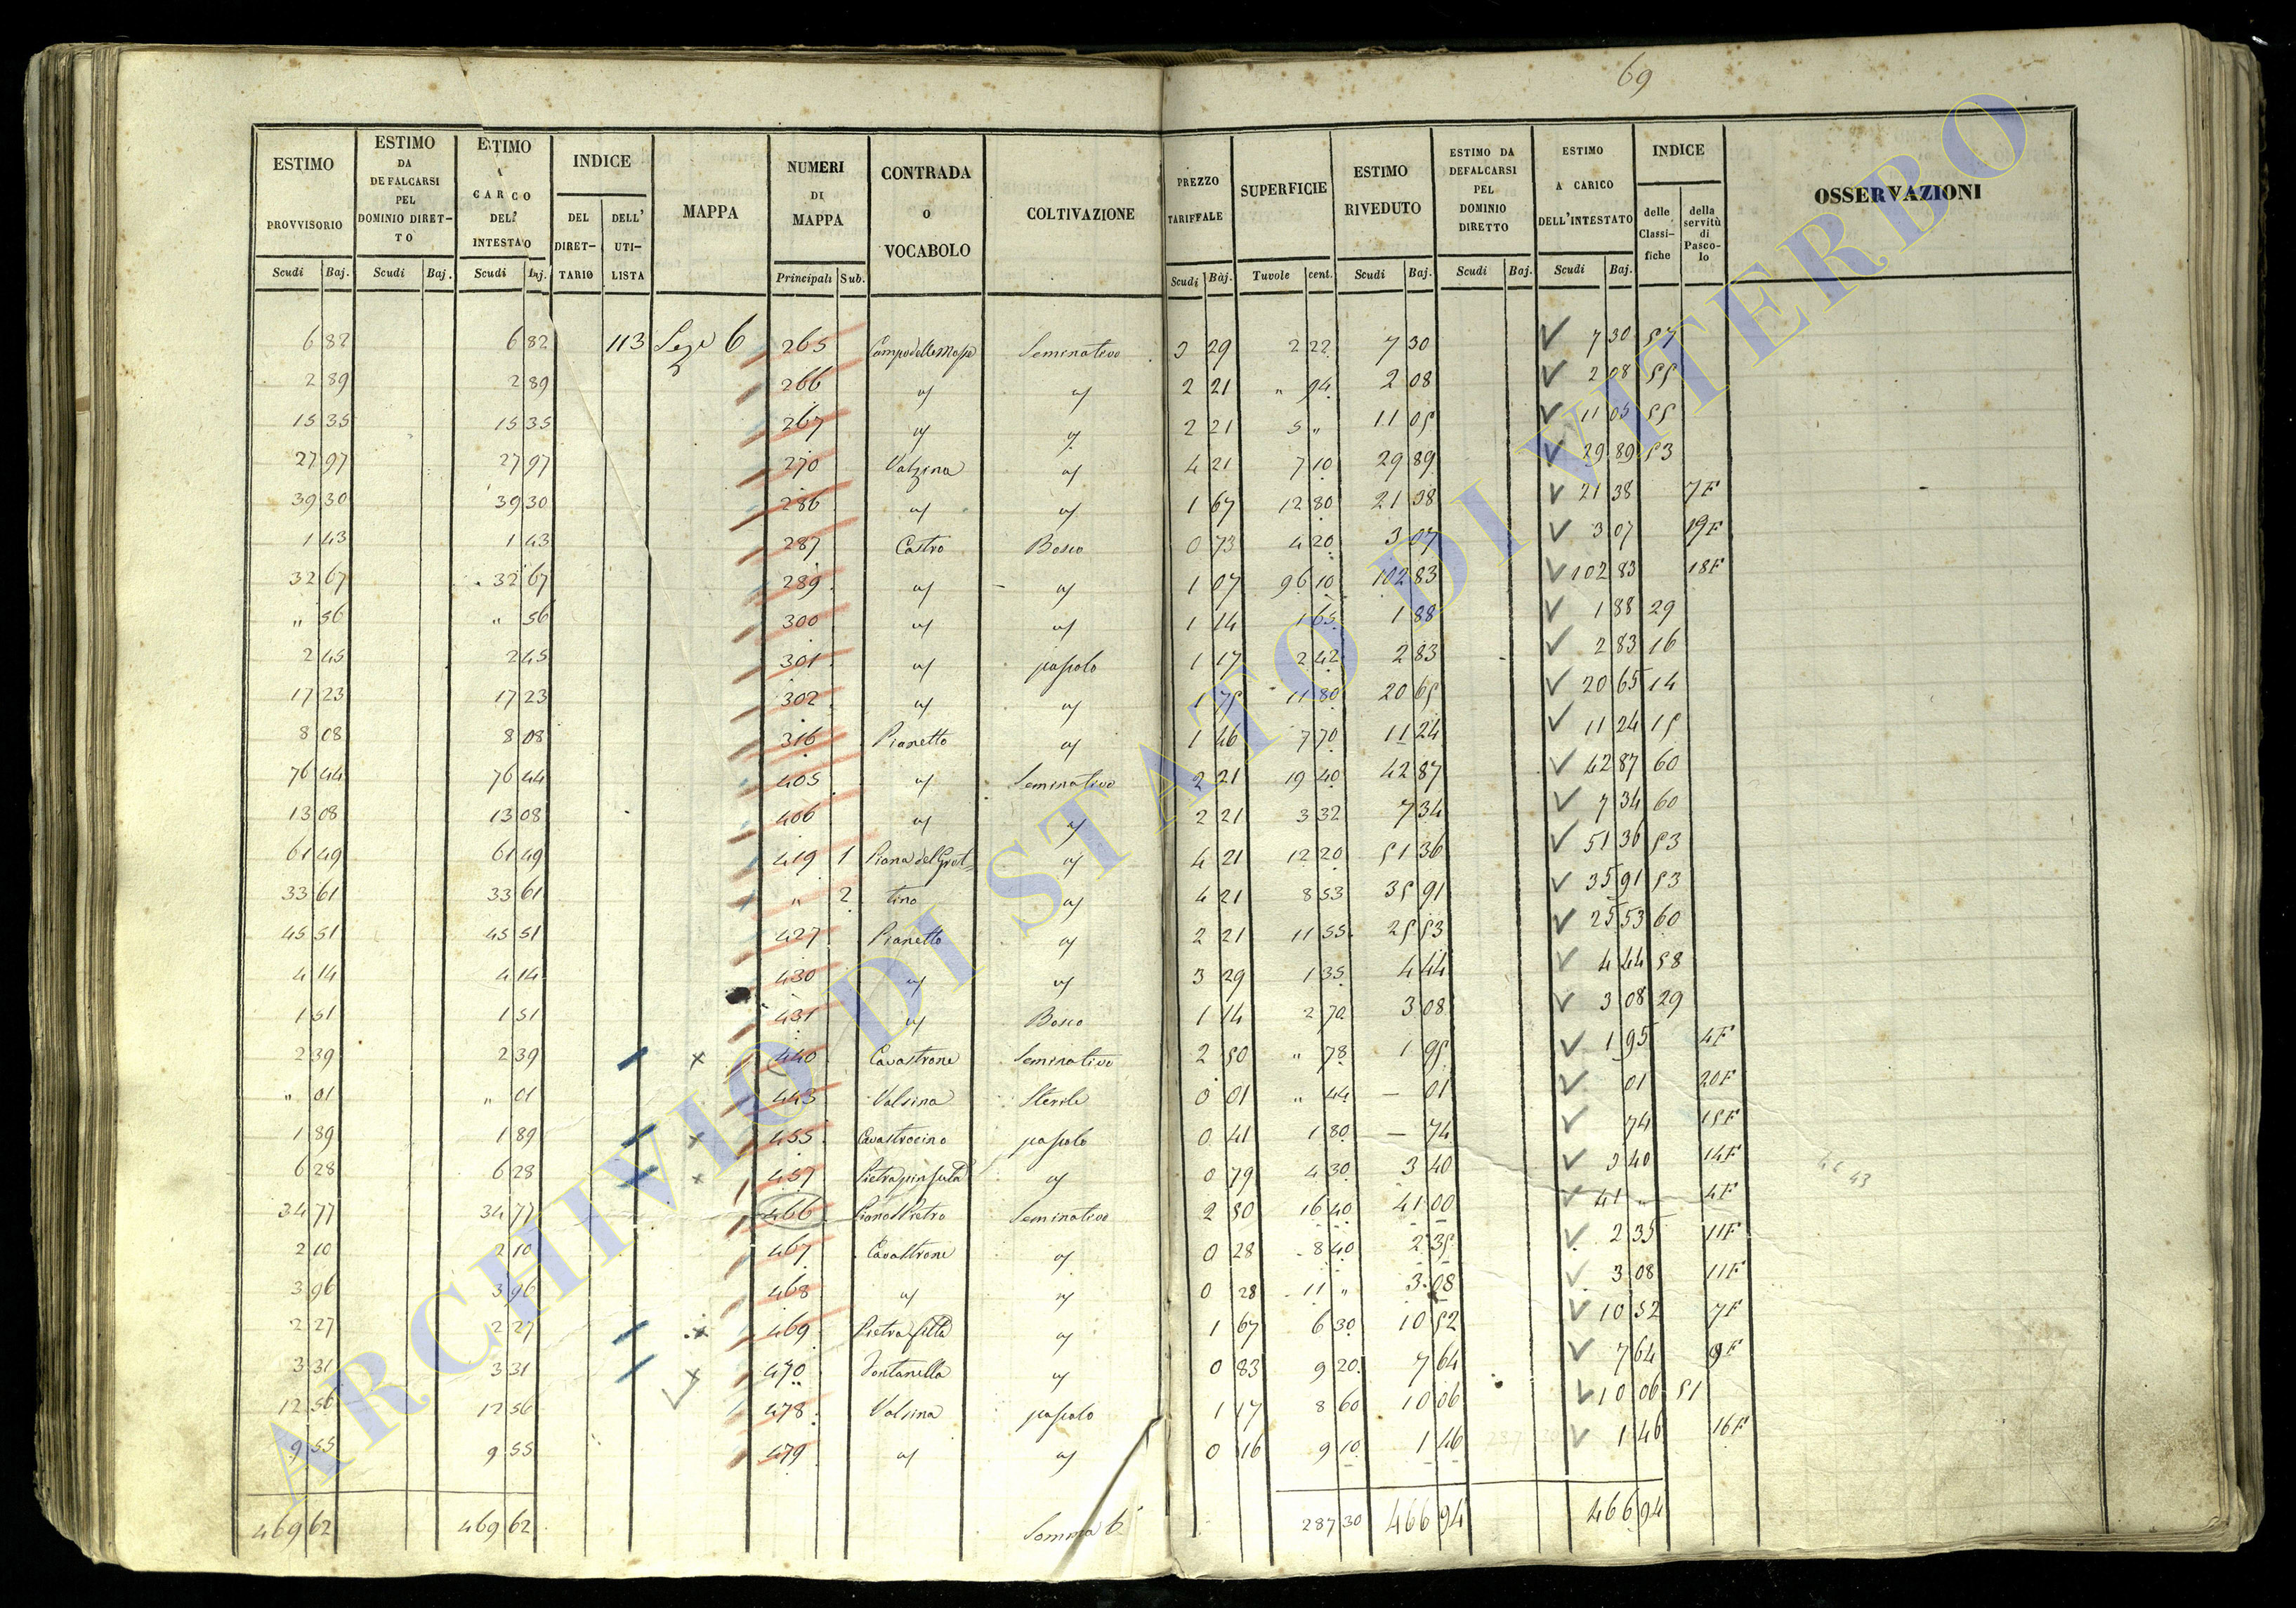 69
ESTIMO PROVVISORIO | ESTIMO DA DEFALCARSI PEL DOMINIO DIRET-TO | ESTIMO A CARCO DELL' INTESTAO | INDICE DEL DIRET-TARIO | DELL' UTI-LISTA | MAPPA | NUMERI DI MAPPA | CONTRADA O VOCABOLO | COLTIVAZIONE | PREZZO TARIFFALE | SUPERFICIE | ESTIMO RIVEDUTO | ESTIMO DA DEFALCARSI PEL DOMINIO DIRETTO | ESTIMO A CARICO DELL'INTESTATO | INDICE delle Classi-fiche | della servitù di Pasco-lo | OSSERVAZIONI
Scudi | Baj. | Scudi | Baj. | Scudi | Baj. | Principali | Sub. | Scudi | Baj. | Tavole | cent. | Scudi | Baj. | Scudi | Baj. | Scudi | Baj.
6 82 6 82 113 Sez 6 265 Campo delle Mosse Seminativo 3 29 2 22 7 30 7 30 57
2 89 2 89 266 " " 2 21 " 94 2 08 2 08 55
15 35 15 35 267 " " 2 21 5 " 11 05 11 05 55
27 97 27 97 270 Valzina " 4 21 7 10 29 89 29 89 53
39 30 39 30 286 " " 1 67 12 80 21 38 21 38 7F
1 43 1 43 287 Castro Bosco 0 73 4 20 3 07 3 07 19F
32 67 32 67 289 " " 1 07 96 10 102 83 102 83 18F
" 56 " 56 300 " " 1 14 1 65 1 88 1 88 29
2 45 2 45 301 " pascolo 1 17 2 42 2 83 2 83 16
17 23 17 23 302 " " 1 75 11 80 20 65 20 65 14
8 08 8 08 316 Pianetto " 1 46 7 70 11 24 11 24 15
76 44 76 44 405 " Seminativo 2 21 19 40 42 87 42 87 60
13 08 13 08 406 " " 2 21 3 32 7 34 7 34 60
61 49 61 49 419 1 Piana del Grot= " 4 21 12 20 51 36 51 36 53
33 61 33 61 " 2 tino " 4 21 8 53 35 91 35 91 53
45 51 45 51 427 Pianetto " 2 21 11 55 25 53 25 53 60
4 14 4 14 430 " " 3 29 1 35 4 44 4 44 58
1 51 1 51 431 " Bosco 1 14 2 70 3 08 3 08 29
2 39 2 39 440 Cavastrone Seminativo 2 50 " 78 1 95 1 95 4F
" 01 " 01 443 Valsina Sterile 0 01 " 44 — 01 01 20F
1 89 1 89 455 Cavastrocino pascolo 0 41 1 80 — 74 74 15F
6 28 6 28 457 " 0 79 4 30 3 40 3 40 14F
34 77 34 77 466 Piana Pietro Seminativo 2 50 16 40 41 00 41 " 4F
2 10 2 10 467 Cavastrone " 0 28 8 40 2 35 2 35 11F
3 96 3 96 468 " " 0 28 11 " 3 08 3 08 11F
2 27 2 27 469 Pietrafitta " 1 67 6 30 10 52 10 52 7F
3 31 3 31 470 Fontanella " 0 83 9 20 7 64 7 64 9F
12 56 12 56 478 Valsina pascolo 1 17 8 60 10 06 10 06 51
9 55 9 55 479 " " 0 16 9 10 1 46 1 46 16F
469 62 469 62 Somma 6 287 30 466 94 466 94
ARCHIVIO DI STATO DI VITERBO